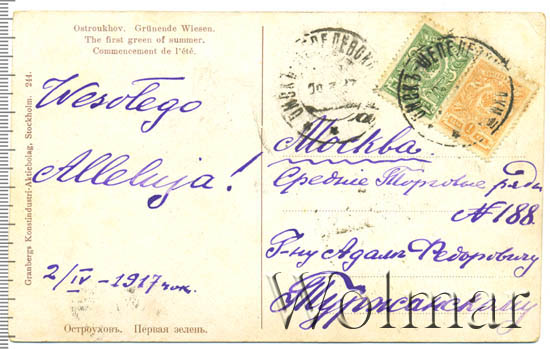 Ostroukhov. Grünende Wiesen.
The first green of summer.
Commencement de l'été.
Wesołego
Alleluja!
2/IV - 1917
Остроуховъ. Первая зелень.
Granbergs Konstindustri-Aktiebolag, Stockholm. 244.
Москва
Средние Торговые ряды
№ 188
Г-ну Адаму Федоровичу
Wolmar